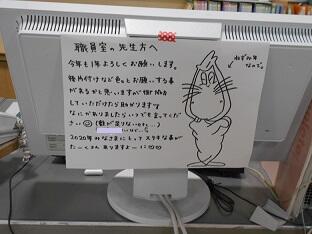 職員室の先生方へ
今年も1年よろしくお願いします。
後片付けなど色々とお願いする事
があるかと思いますが
していただけたら助かります
なにかありましたらいつでも言ってくだ
さい
2020年みなさまにとってステキな事が
たーくさんありますよーに
ねずみ年
なので。